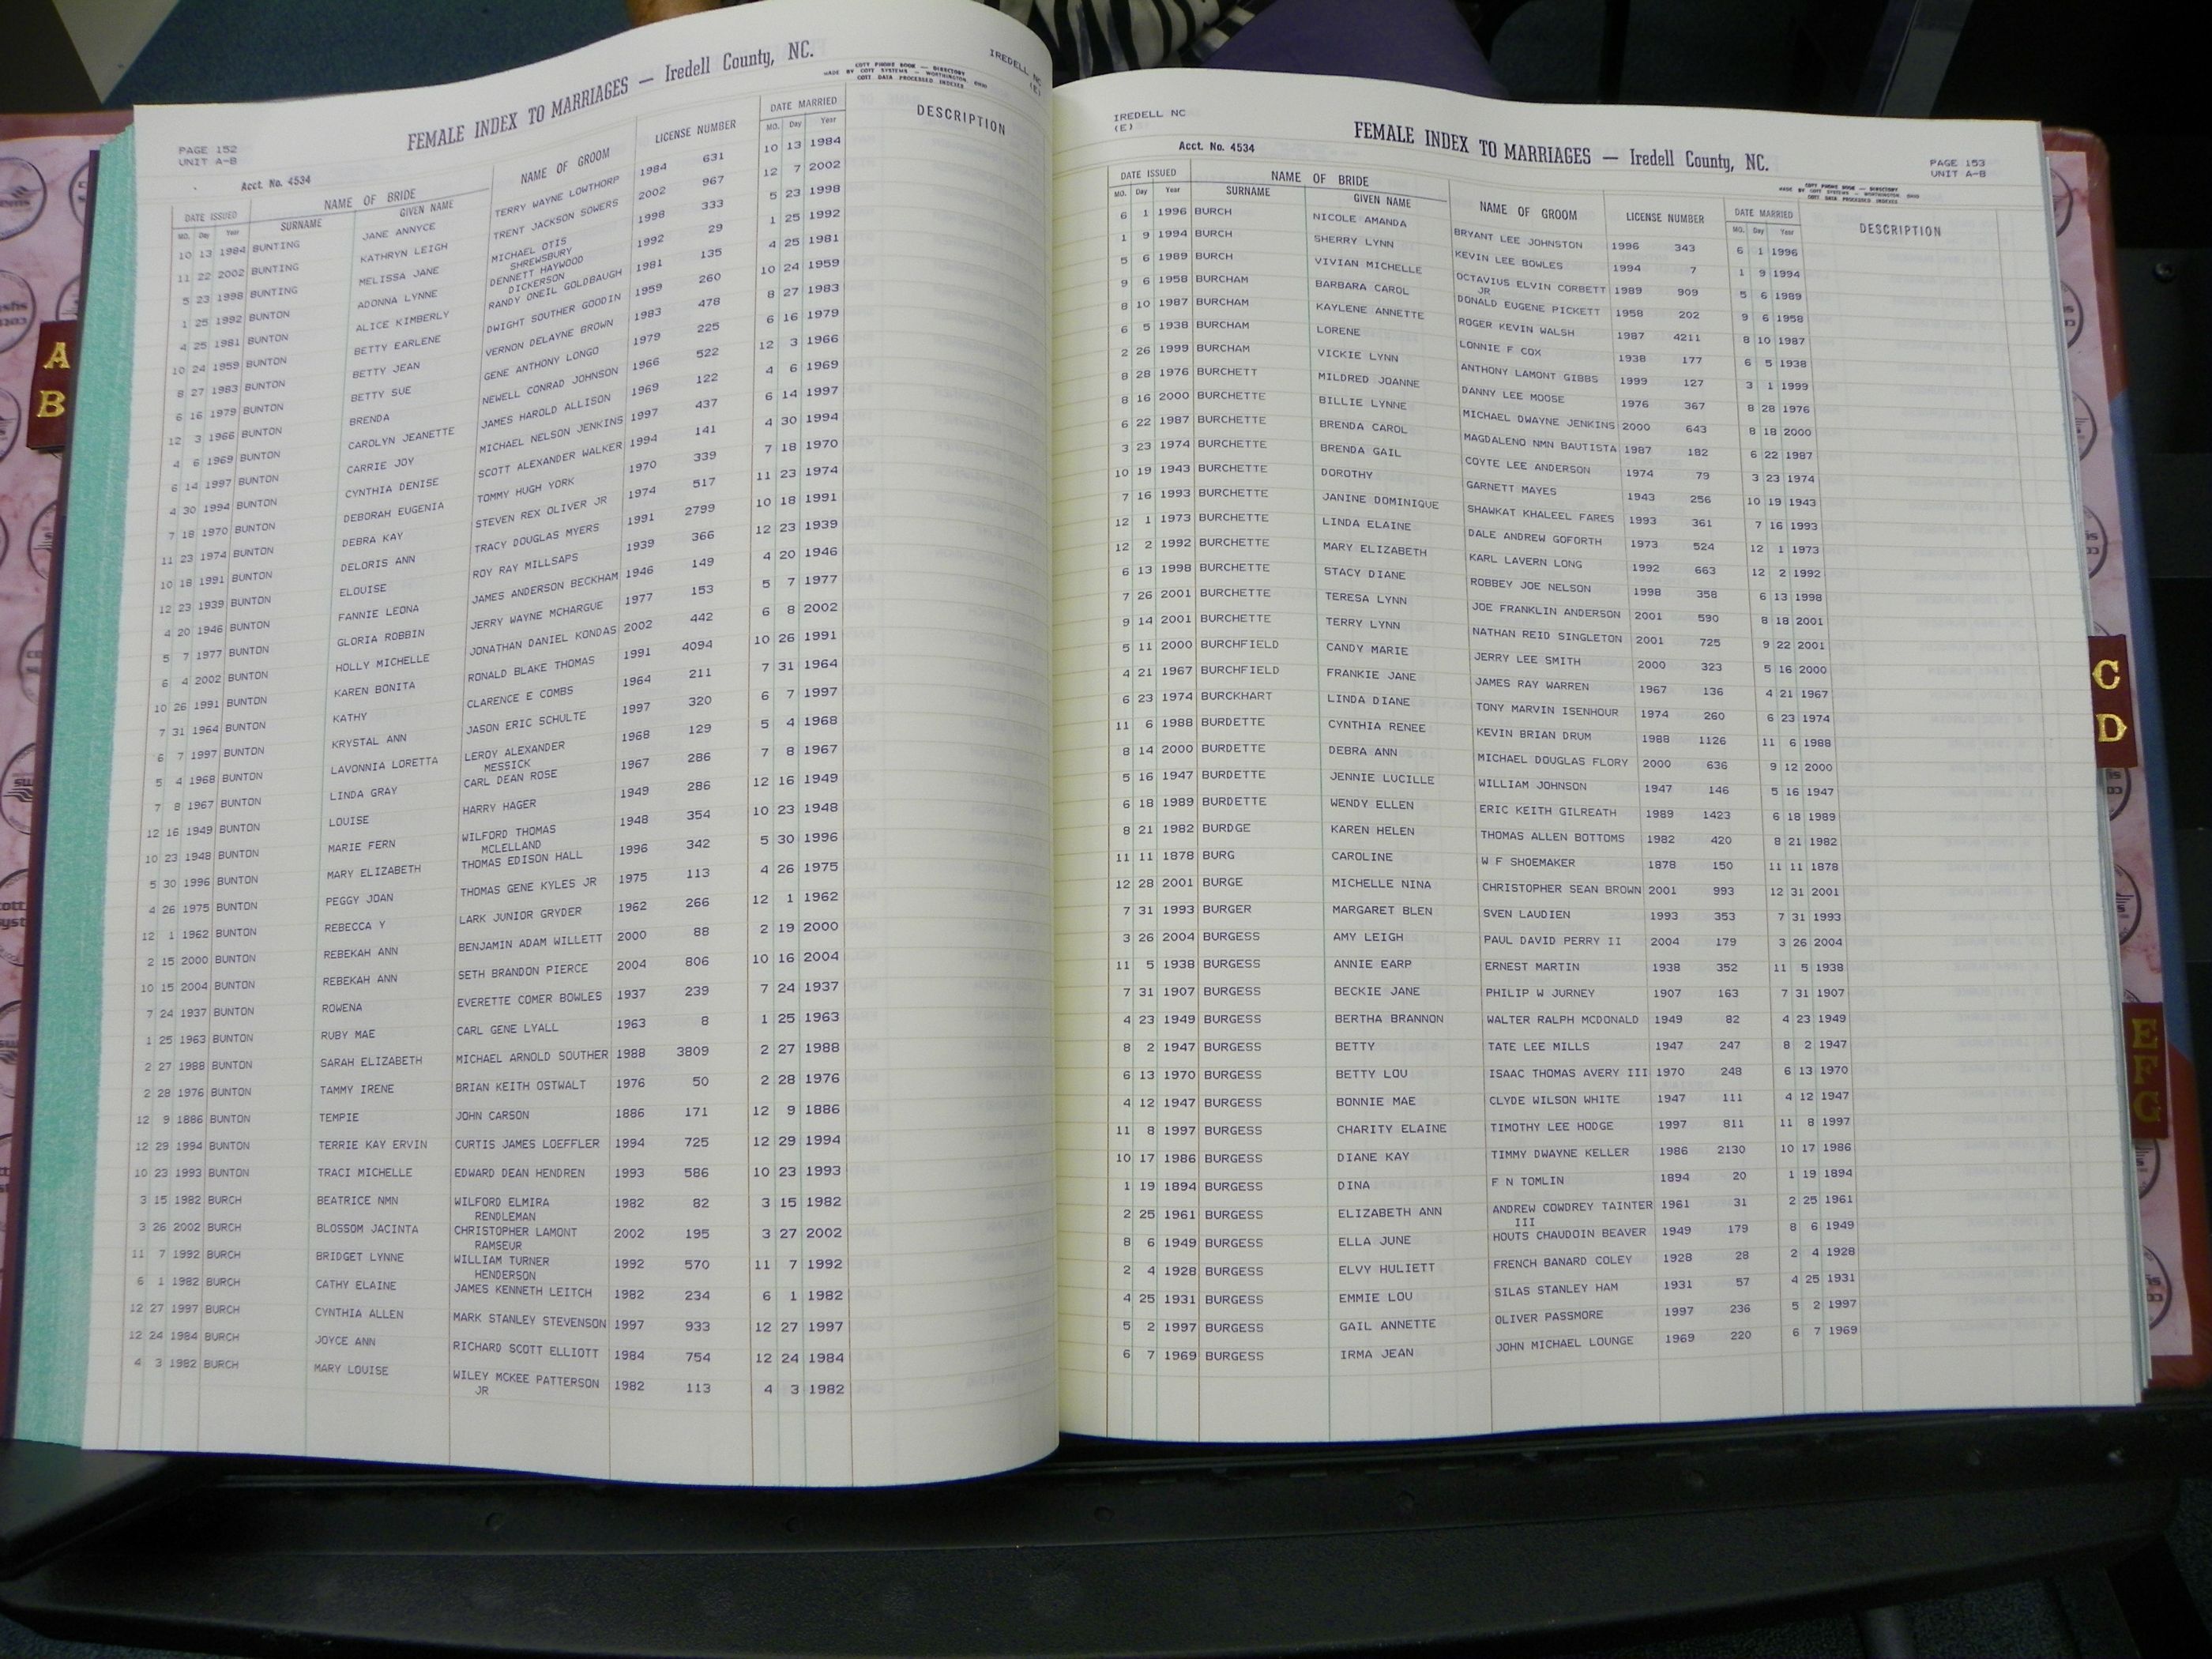 FEMALE INDEX TO MARRIAGES — Iredell County, NC.
COTT PHONE BOOK — DIRECTORY
MADE BY COTT SYSTEMS — WORTHINGTON,
COTT DATA PROCESSED INDEXES
IREDELL NC
(E)
PAGE 152
UNIT A-B
Acct. No. 4534
DATE ISSUED NAME OF BRIDE NAME OF GROOM LICENSE NUMBER DATE MARRIED DESCRIPTION
MO. Day Year SURNAME GIVEN NAME MO. Day Year
10 13 1984 BUNTING JANE ANNYCE TERRY WAYNE LOWTHORP 1984 631 10 13 1984
11 22 2002 BUNTING KATHRYN LEIGH TRENT JACKSON SOWERS 2002 967 12 7 2002
5 23 1998 BUNTING MELISSA JANE MICHAEL OTIS 1998 333 5 23 1998
SHREWSBURY
1 25 1992 BUNTON ADONNA LYNNE DENNETT HAYWOOD 1992 29 1 25 1992
DICKERSON
4 25 1981 BUNTON ALICE KIMBERLY RANDY ONEIL GOLDBAUGH 1981 135 4 25 1981
10 24 1959 BUNTON BETTY EARLENE DWIGHT SOUTHER GOODIN 1959 260 10 24 1959
8 27 1983 BUNTON BETTY JEAN VERNON DELAYNE BROWN 1983 478 8 27 1983
6 16 1979 BUNTON BETTY SUE GENE ANTHONY LONGO 1979 225 6 16 1979
12 3 1966 BUNTON BRENDA NEWELL CONRAD JOHNSON 1966 522 12 3 1966
4 6 1969 BUNTON CAROLYN JEANETTE JAMES HAROLD ALLISON 1969 122 4 6 1969
6 14 1997 BUNTON CARRIE JOY MICHAEL NELSON JENKINS 1997 437 6 14 1997
4 30 1994 BUNTON CYNTHIA DENISE SCOTT ALEXANDER WALKER 1994 141 4 30 1994
7 18 1970 BUNTON DEBORAH EUGENIA TOMMY HUGH YORK 1970 339 7 18 1970
11 23 1974 BUNTON DEBRA KAY STEVEN REX OLIVER JR 1974 517 11 23 1974
10 18 1991 BUNTON DELORIS ANN TRACY DOUGLAS MYERS 1991 2799 10 18 1991
12 23 1939 BUNTON ELOUISE ROY RAY MILLSAPS 1939 366 12 23 1939
4 20 1946 BUNTON FANNIE LEONA JAMES ANDERSON BECKHAM 1946 149 4 20 1946
5 7 1977 BUNTON GLORIA ROBBIN JERRY WAYNE MCHARGUE 1977 153 5 7 1977
6 4 2002 BUNTON HOLLY MICHELLE JONATHAN DANIEL KONDAS 2002 442 6 8 2002
10 26 1991 BUNTON KAREN BONITA RONALD BLAKE THOMAS 1991 4094 10 26 1991
7 31 1964 BUNTON KATHY CLARENCE E COMBS 1964 211 7 31 1964
6 7 1997 BUNTON KRYSTAL ANN JASON ERIC SCHULTE 1997 320 6 7 1997
5 4 1968 BUNTON LAVONNIA LORETTA LEROY ALEXANDER 1968 129 5 4 1968
MESSICK
7 8 1967 BUNTON LINDA GRAY CARL DEAN ROSE 1967 286 7 8 1967
12 16 1949 BUNTON LOUISE HARRY HAGER 1949 286 12 16 1949
10 23 1948 BUNTON MARIE FERN WILFORD THOMAS 1948 354 10 23 1948
MCLELLAND
5 30 1996 BUNTON MARY ELIZABETH THOMAS EDISON HALL 1996 342 5 30 1996
4 26 1975 BUNTON PEGGY JOAN THOMAS GENE KYLES JR 1975 113 4 26 1975
12 1 1962 BUNTON REBECCA Y LARK JUNIOR GRYDER 1962 266 12 1 1962
2 15 2000 BUNTON REBEKAH ANN BENJAMIN ADAM WILLETT 2000 88 2 19 2000
10 15 2004 BUNTON REBEKAH ANN SETH BRANDON PIERCE 2004 806 10 16 2004
7 24 1937 BUNTON ROWENA EVERETTE COMER BOWLES 1937 239 7 24 1937
1 25 1963 BUNTON RUBY MAE CARL GENE LYALL 1963 8 1 25 1963
2 27 1988 BUNTON SARAH ELIZABETH MICHAEL ARNOLD SOUTHER 1988 3809 2 27 1988
2 28 1976 BUNTON TAMMY IRENE BRIAN KEITH OSTWALT 1976 50 2 28 1976
12 9 1886 BUNTON TEMPIE JOHN CARSON 1886 171 12 9 1886
12 29 1994 BUNTON TERRIE KAY ERVIN CURTIS JAMES LOEFFLER 1994 725 12 29 1994
10 23 1993 BUNTON TRACI MICHELLE EDWARD DEAN HENDREN 1993 586 10 23 1993
3 15 1982 BURCH BEATRICE NMN WILFORD ELMIRA 1982 82 3 15 1982
RENDLEMAN
3 26 2002 BURCH BLOSSOM JACINTA CHRISTOPHER LAMONT 2002 195 3 27 2002
RAMSEUR
11 7 1992 BURCH BRIDGET LYNNE WILLIAM TURNER 1992 570 11 7 1992
HENDERSON
6 1 1982 BURCH CATHY ELAINE JAMES KENNETH LEITCH 1982 234 6 1 1982
12 27 1997 BURCH CYNTHIA ALLEN MARK STANLEY STEVENSON 1997 933 12 27 1997
12 24 1984 BURCH JOYCE ANN RICHARD SCOTT ELLIOTT 1984 754 12 24 1984
4 3 1982 BURCH MARY LOUISE WILEY MCKEE PATTERSON 1982 113 4 3 1982
JR
IREDELL NC
(E)
FEMALE INDEX TO MARRIAGES — Iredell County, NC.
Acct. No. 4534
PAGE 153
UNIT A-B
COTT PHONE BOOK — DIRECTORY
MADE BY COTT SYSTEMS — WORTHINGTON,
COTT DATA PROCESSED INDEXES
DATE ISSUED NAME OF BRIDE NAME OF GROOM LICENSE NUMBER DATE MARRIED DESCRIPTION
MO. Day Year SURNAME GIVEN NAME MO. Day Year
6 1 1996 BURCH NICOLE AMANDA BRYANT LEE JOHNSTON 1996 343 6 1 1996
1 9 1994 BURCH SHERRY LYNN KEVIN LEE BOWLES 1994 7 1 9 1994
5 6 1989 BURCH VIVIAN MICHELLE OCTAVIUS ELVIN CORBETT 1989 909 5 6 1989
JR
9 6 1958 BURCHAM BARBARA CAROL DONALD EUGENE PICKETT 1958 202 9 6 1958
8 10 1987 BURCHAM KAYLENE ANNETTE ROGER KEVIN WALSH 1987 4211 8 10 1987
6 5 1938 BURCHAM LORENE LONNIE F COX 1938 177 6 5 1938
2 26 1999 BURCHAM VICKIE LYNN ANTHONY LAMONT GIBBS 1999 127 3 1 1999
8 28 1976 BURCHETT MILDRED JOANNE DANNY LEE MOOSE 1976 367 8 28 1976
8 16 2000 BURCHETTE BILLIE LYNNE MICHAEL DWAYNE JENKINS 2000 643 8 18 2000
6 22 1987 BURCHETTE BRENDA CAROL MAGDALENO NMN BAUTISTA 1987 182 6 22 1987
3 23 1974 BURCHETTE BRENDA GAIL COYTE LEE ANDERSON 1974 79 3 23 1974
10 19 1943 BURCHETTE DOROTHY GARNETT MAYES 1943 256 10 19 1943
7 16 1993 BURCHETTE JANINE DOMINIQUE SHAWKAT KHALEEL FARES 1993 361 7 16 1993
12 1 1973 BURCHETTE LINDA ELAINE DALE ANDREW GOFORTH 1973 524 12 1 1973
12 2 1992 BURCHETTE MARY ELIZABETH KARL LAVERN LONG 1992 663 12 2 1992
6 13 1998 BURCHETTE STACY DIANE ROBBEY JOE NELSON 1998 358 6 13 1998
7 26 2001 BURCHETTE TERESA LYNN JOE FRANKLIN ANDERSON 2001 590 8 18 2001
9 14 2001 BURCHETTE TERRY LYNN NATHAN REID SINGLETON 2001 725 9 22 2001
5 11 2000 BURCHFIELD CANDY MARIE JERRY LEE SMITH 2000 323 5 16 2000
4 21 1967 BURCHFIELD FRANKIE JANE JAMES RAY WARREN 1967 136 4 21 1967
6 23 1974 BURCKHART LINDA DIANE TONY MARVIN ISENHOUR 1974 260 6 23 1974
11 6 1988 BURDETTE CYNTHIA RENEE KEVIN BRIAN DRUM 1988 1126 11 6 1988
8 14 2000 BURDETTE DEBRA ANN MICHAEL DOUGLAS FLORY 2000 636 9 12 2000
5 16 1947 BURDETTE JENNIE LUCILLE WILLIAM JOHNSON 1947 146 5 16 1947
6 18 1989 BURDETTE WENDY ELLEN ERIC KEITH GILREATH 1989 1423 6 18 1989
8 21 1982 BURDGE KAREN HELEN THOMAS ALLEN BOTTOMS 1982 420 8 21 1982
11 11 1878 BURG CAROLINE W F SHOEMAKER 1878 150 11 11 1878
12 28 2001 BURGE MICHELLE NINA CHRISTOPHER SEAN BROWN 2001 993 12 31 2001
7 31 1993 BURGER MARGARET BLEN SVEN LAUDIEN 1993 353 7 31 1993
3 26 2004 BURGESS AMY LEIGH PAUL DAVID PERRY II 2004 179 3 26 2004
11 5 1938 BURGESS ANNIE EARP ERNEST MARTIN 1938 352 11 5 1938
7 31 1907 BURGESS BECKIE JANE PHILIP W JURNEY 1907 163 7 31 1907
4 23 1949 BURGESS BERTHA BRANNON WALTER RALPH MCDONALD 1949 82 4 23 1949
8 2 1947 BURGESS BETTY TATE LEE MILLS 1947 247 8 2 1947
6 13 1970 BURGESS BETTY LOU ISAAC THOMAS AVERY III 1970 248 6 13 1970
4 12 1947 BURGESS BONNIE MAE CLYDE WILSON WHITE 1947 111 4 12 1947
11 8 1997 BURGESS CHARITY ELAINE TIMOTHY LEE HODGE 1997 811 11 8 1997
10 17 1986 BURGESS DIANE KAY TIMMY DWAYNE KELLER 1986 2130 10 17 1986
1 19 1894 BURGESS DINA F N TOMLIN 1894 20 1 19 1894
2 25 1961 BURGESS ELIZABETH ANN ANDREW COWDREY TAINTER 1961 31 2 25 1961
III
8 6 1949 BURGESS ELLA JUNE HOUTS CHAUDOIN BEAVER 1949 179 8 6 1949
2 4 1928 BURGESS ELVY HULIETT FRENCH BANARD COLEY 1928 28 2 4 1928
4 25 1931 BURGESS EMMIE LOU SILAS STANLEY HAM 1931 57 4 25 1931
5 2 1997 BURGESS GAIL ANNETTE OLIVER PASSMORE 1997 236 5 2 1997
6 7 1969 BURGESS IRMA JEAN JOHN MICHAEL LOUNGE 1969 220 6 7 1969
A
B
C
D
E
F
G